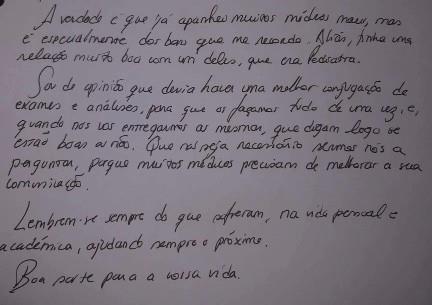 A verdade é que já apanhei muitos médicos maus, mas
é especialmente dos bons que me recordo. Aliás, tinha uma
relação muito boa com um deles, que era Pediatra.
Sou de opinião que devia haver uma melhor conjugação de
exames e análises, para que os façamos tudo de uma vez, e,
quando nos vão entregarmos as mesmas, que digam logo se
estão boas ou não. Que não seja necessário sermos nós a
perguntar, porque muitos médicos precisam de melhorar a sua
comunicação.
Lembrem-se sempre do que sofreram, na vida pessoal e
académica, ajudando sempre o próximo.
Boa sorte para a vossa vida.